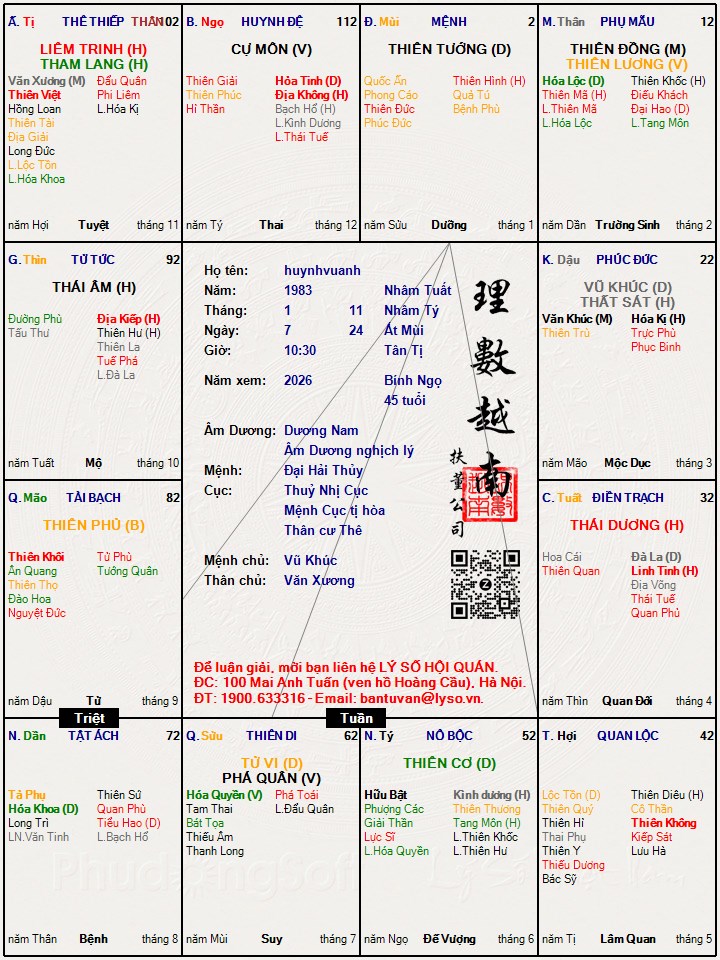 Ấ. Tị THÊ THIẾP THÂN 102
LIÊM TRINH (H)
THAM LANG (H)
Văn Xương (M) Đẩu Quân
Thiên Việt Phi Liêm
Hồng Loan L.Hóa Kị
Thiên Tài
Địa Giải
Long Đức
L.Lộc Tồn
L.Hóa Khoa
năm Hợi Tuyệt tháng 11
B. Ngọ HUYNH ĐỆ 112
CỰ MÔN (V)
Thiên Giải Hỏa Tinh (D)
Thiên Phúc Địa Không (H)
Hỉ Thần Bạch Hổ (H)
L.Kình Dương
L.Thái Tuế
năm Tý Thai tháng 12
Đ. Mùi MỆNH 2
THIÊN TƯỚNG (D)
Quốc Ấn Thiên Hình (H)
Phong Cáo Quả Tú
Thiên Đức Bệnh Phù
Phúc Đức
năm Sửu Dưỡng tháng 1
M. Thân PHỤ MẪU 12
THIÊN ĐỒNG (M)
THIÊN LƯƠNG (V)
Hóa Lộc (D) Thiên Khốc (H)
Thiên Mã (H) Điếu Khách
L.Thiên Mã Đại Hao (D)
L.Hóa Lộc L.Tang Môn
năm Dần Trường Sinh tháng 2
G. Thìn TỬ TỨC 92
THÁI ÂM (H)
Đường Phù Địa Kiếp (H)
Tấu Thư Thiên Hư (H)
Thiên La
Tuế Phá
L.Đà La
năm Tuất Mộ tháng 10
Họ tên: huynhvuanh
Năm: 1983 Nhâm Tuất
Tháng: 1 11 Nhâm Tý
Ngày: 7 24 Ất Mùi
Giờ: 10:30 Tân Tị
Năm xem: 2026 Bính Ngọ
45 tuổi
Âm Dương: Dương Nam
Âm Dương nghịch lý
Mệnh: Đại Hải Thủy
Cục: Thuỷ Nhị Cục
Mệnh Cục tị hòa
Thân cư Thê
Mệnh chủ: Vũ Khúc
Thân chủ: Văn Xương
理數越南
扶董公司
Để luận giải, mời bạn liên hệ LÝ SỐ HỘI QUÁN.
ĐC: 100 Mai Anh Tuấn (ven hồ Hoàng Cầu), Hà Nội.
ĐT: 1900.633316 - Email: bantuvan@lyso.vn.
K. Dậu PHÚC ĐỨC 22
VŨ KHÚC (D)
THẤT SÁT (H)
Văn Khúc (M) Hóa Kị (H)
Thiên Trù Trực Phù
Phục Binh
năm Mão Mộc Dục tháng 3
Q. Mão TÀI BẠCH 82
THIÊN PHỦ (B)
Thiên Khôi Tử Phù
Ân Quang Tướng Quân
Thiên Thọ
Đào Hoa
Nguyệt Đức
năm Dậu Tử tháng 9
C. Tuất ĐIỀN TRẠCH 32
THÁI DƯƠNG (H)
Hoa Cái Đà La (D)
Thiên Quan Linh Tinh (H)
Địa Võng
Thái Tuế
Quan Phủ
năm Thìn Quan Đới tháng 4
Triệt
Tuần
N. Dần TẬT ÁCH 72
Tả Phụ Thiên Sứ
Hóa Khoa (D) Quan Phù
Long Trì Tiểu Hao (D)
LN.Văn Tinh L.Bạch Hổ
năm Thân Bệnh tháng 8
Q. Sửu THIÊN DI 62
TỬ VI (D)
PHÁ QUÂN (V)
Hóa Quyền (V) Phá Toái
Tam Thai L.Đẩu Quân
Bát Tọa
Thiếu Âm
Thanh Long
năm Mùi Suy tháng 7
N. Tý NÔ BỘC 52
THIÊN CƠ (D)
Hữu Bật Kình dương (H)
Phượng Các Thiên Thương
Giải Thần Tang Môn (H)
Lực Sĩ L.Thiên Khốc
L.Hóa Quyền L.Thiên Hư
năm Ngọ Đế Vượng tháng 6
T. Hợi QUAN LỘC 42
Lộc Tồn (D) Thiên Diêu (H)
Thiên Quý Cô Thần
Thiên Hỉ Thiên Không
Thai Phụ Kiếp Sát
Thiên Y Lưu Hà
Thiếu Dương
Bác Sỹ
năm Tị Lâm Quan tháng 5